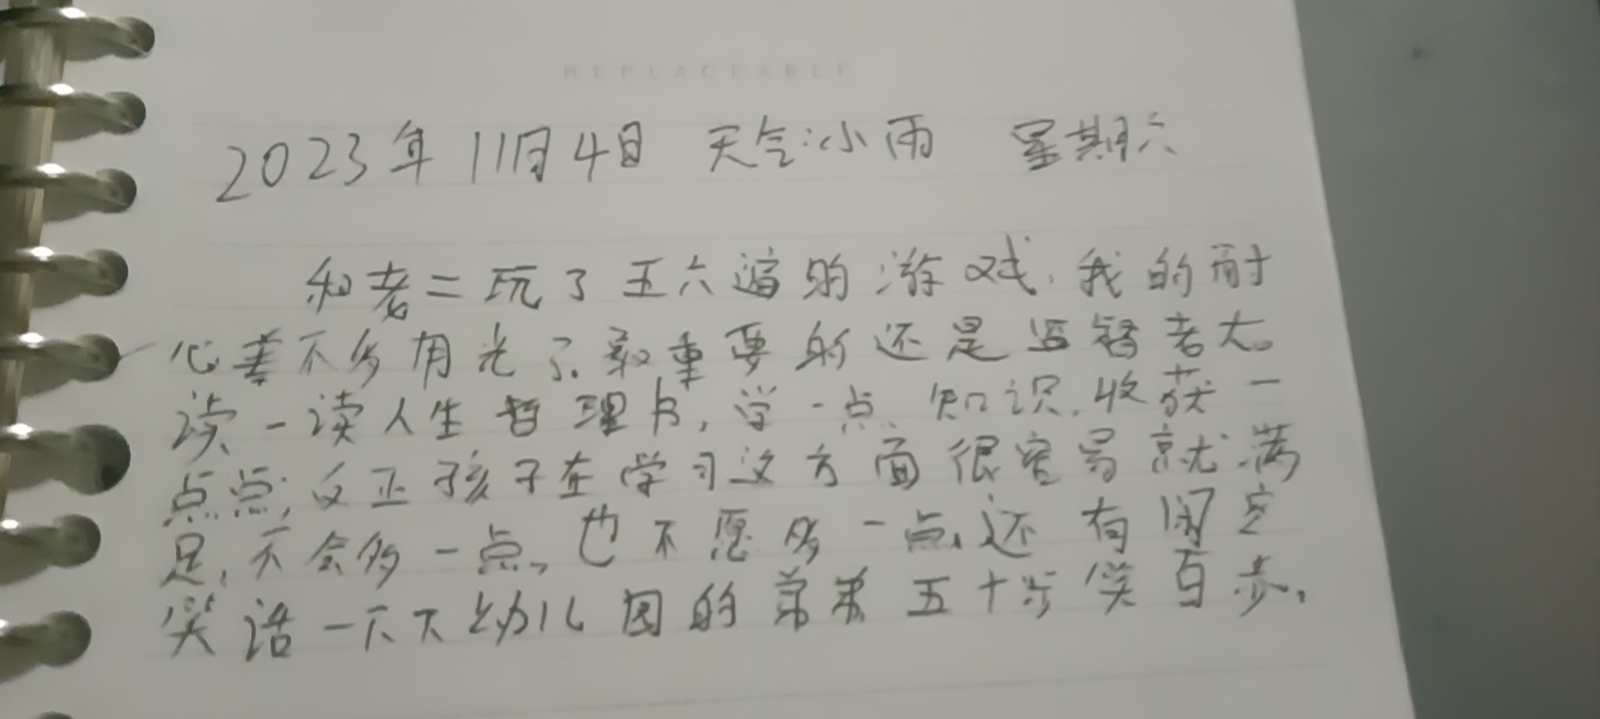 REPLACEABLE
2023年11月4日 天气:小雨 星期六
和老二玩了五六遍的游戏,我的耐
心差不多用光了,最重要的还是监督老大
读一读人生哲理书,学一点知识,收获一
点点,反正孩子在学习这方面很容易就满
足,不会多一点,也不愿多一点,还有闲空
笑话一下下幼儿园的弟弟五十步笑百步。